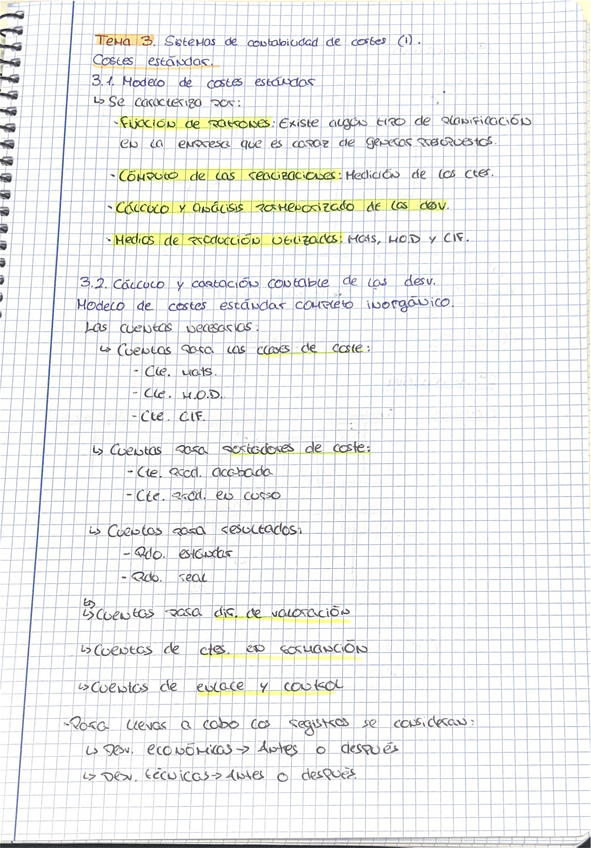 Tema 3. Sistemas de contabilidad de costes (1).
Costes estándar.
3.1. Modelo de costes estándar
↳ Se caracteriza por:
· Fijación de patrones: Existe algún tipo de planificación
en la empresa que es capaz de generar presupuestos.
· Cómputo de las realizaciones: Medición de los ctes.
· Cálculo y análisis pormenorizado de las desv.
· Medios de producción utilizados: Mats, M.O.D y CIF.
3.2. Cálculo y captación contable de las desv.
Modelo de costes estándar completo inorgánico.
Las cuentas necesarias:
↳ Cuentas para las clases de coste:
- Cte. Mats.
- Cte. M.O.D.
- Cte. CIF.
↳ Cuentas para portadores de coste:
- Cte. prod. acabada
- Cte. prod. en curso
↳ Cuentas para resultados:
- Rdo. estándar
- Rdo. real
↳ Cuentas para dif. de valoración
↳ Cuentas de ctes. en formanción
↳ Cuentas de enlace y control
- Para llevar a cabo los registros se consideran:
↳ Desv. económicas → Antes o después
↳ Desv. técnicas → Antes o después.